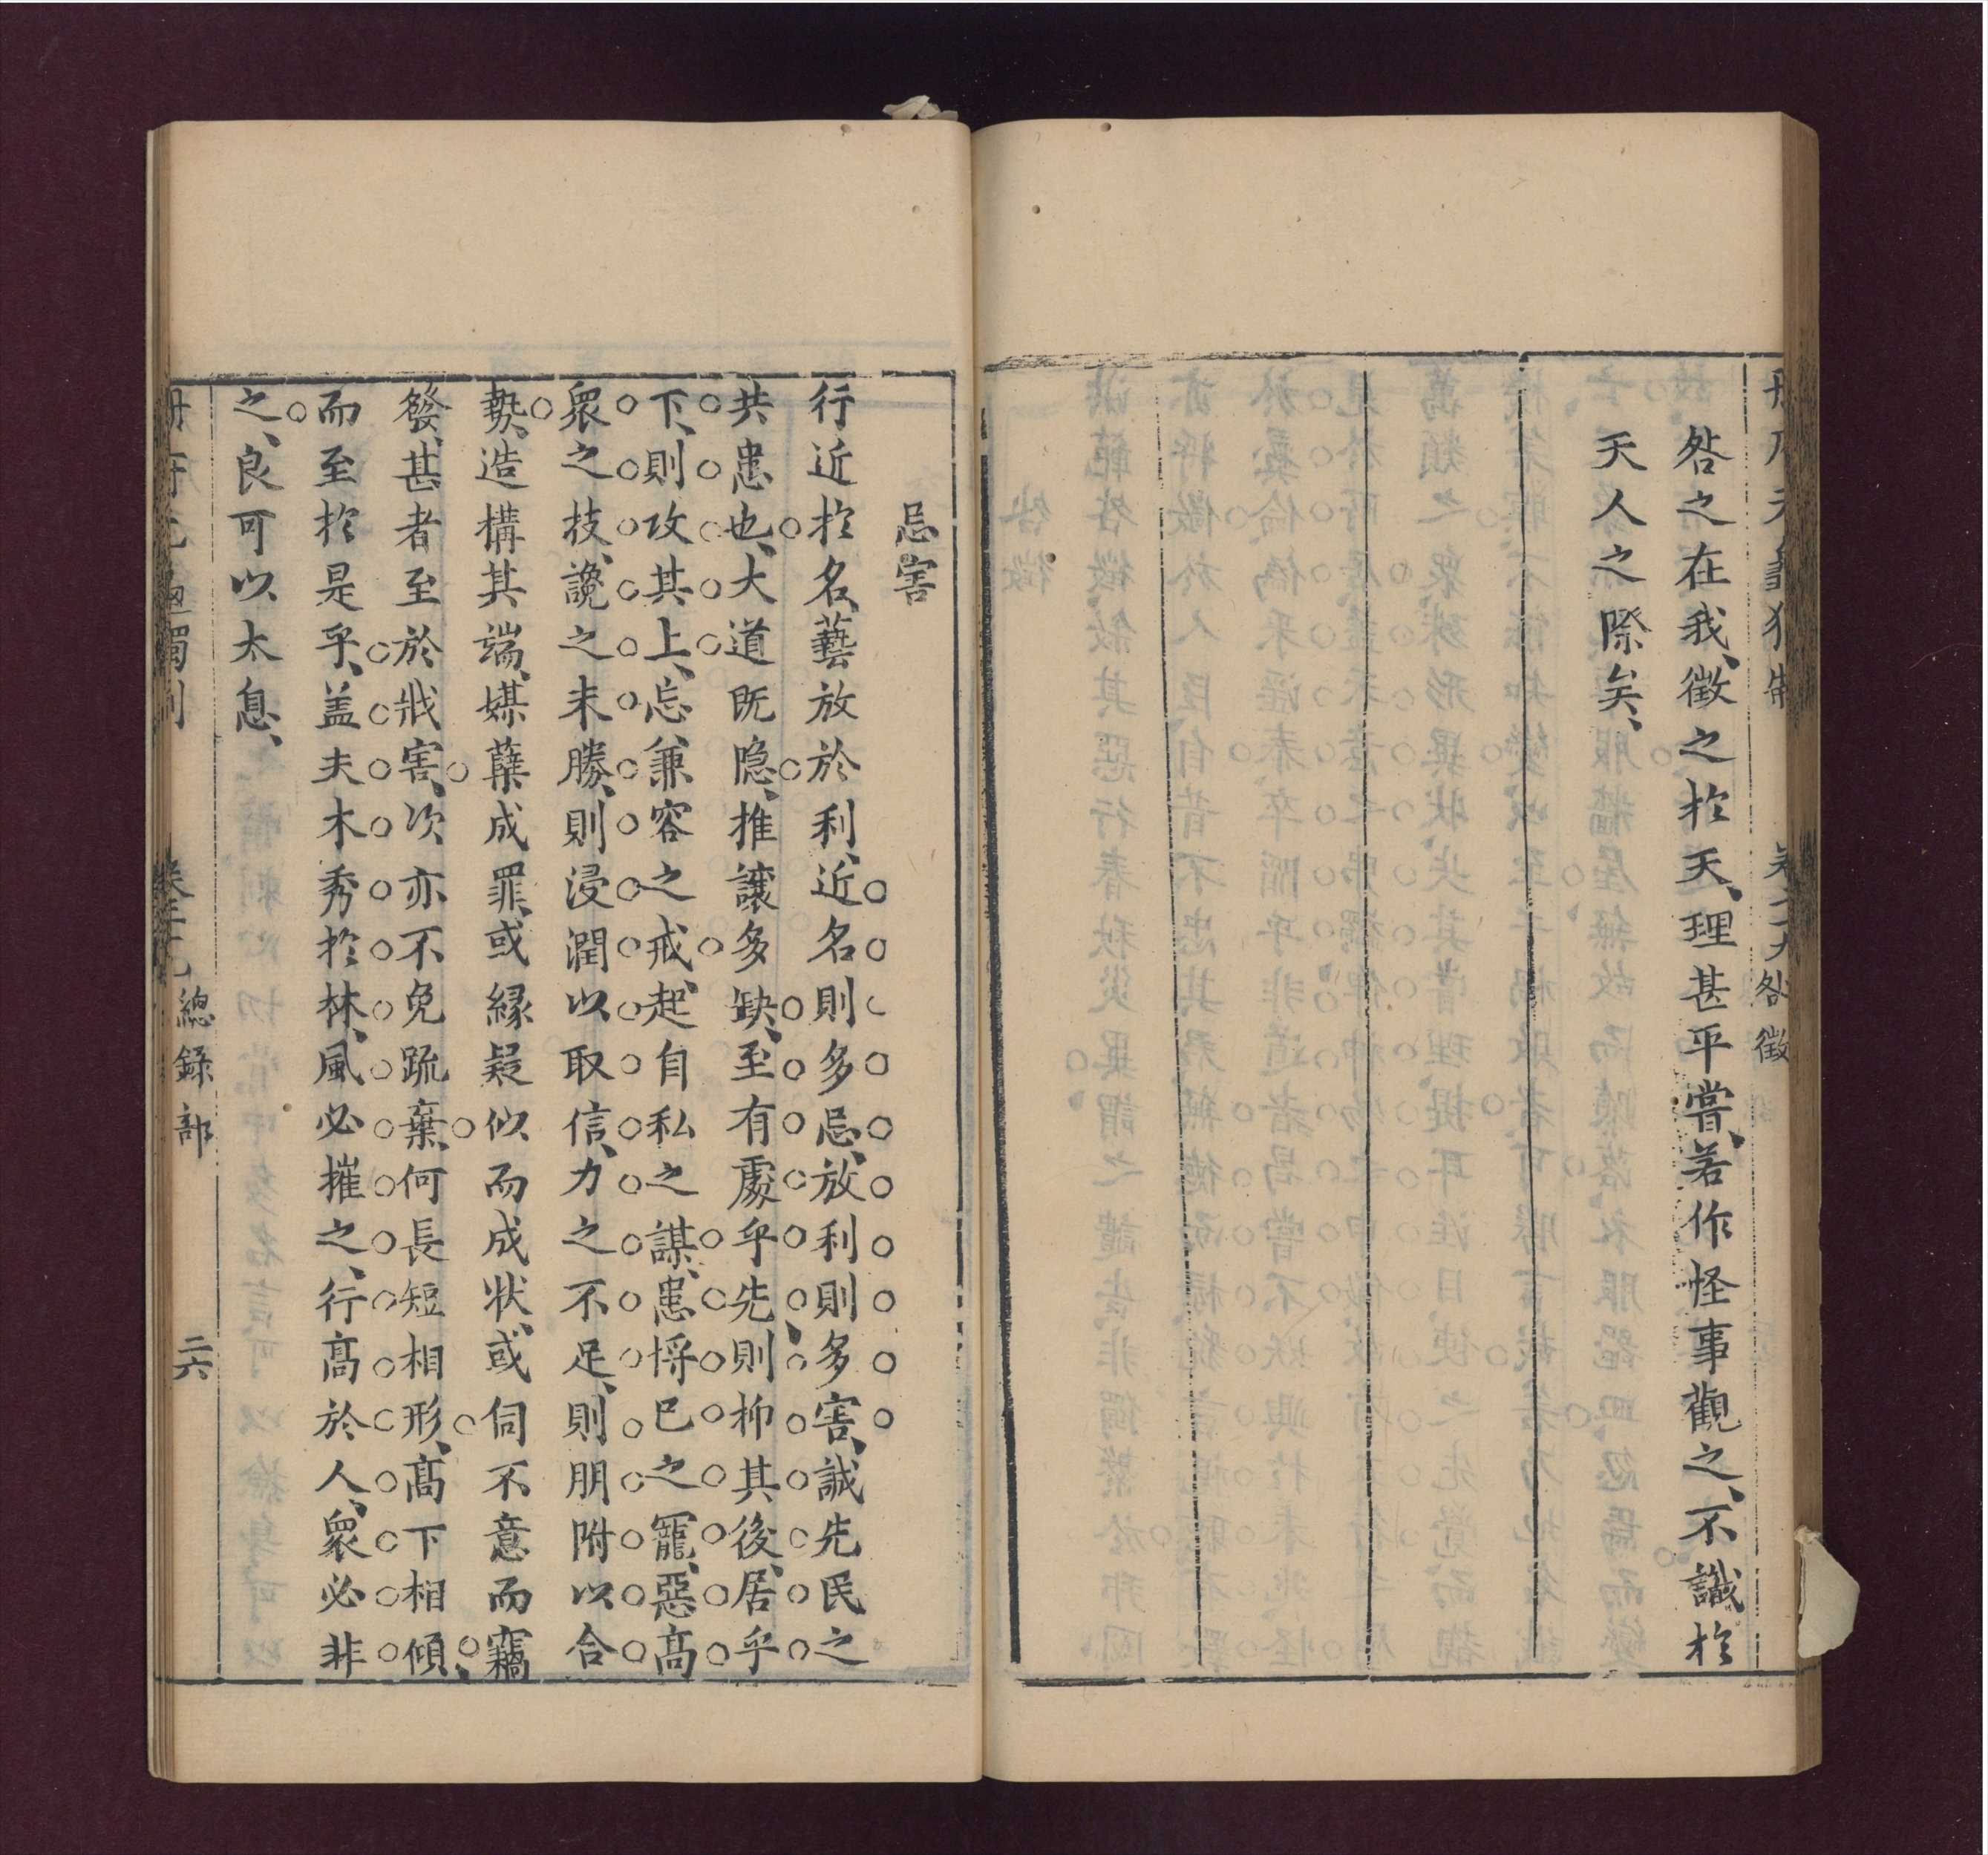 咎之在我、徵之於天、理甚平嘗、若作怪事觀之、不識於
天人之際矣、
咎徵
忌害
行近於名、藝放於利、近名則多忌、放利則多害、誠先民之
共患也、大道既隐、推讓多缺、至有處乎先則抑其後、居乎
下、則攻其上、忘兼容之戒、起自私之謀、患將已之寵、惡高
衆之技、讒之未勝、則浸潤以取信、力之不足、則朋附以合
埶、造構其端、媒蘖成罪、或緣疑似而成状、或伺不意而竊
發、甚者至於戕害、次亦不免疏棄、何長短相形、高下相傾、
而至於是乎、盖夫木秀於林、風必摧之、行高於人、衆必非
之、良可以太息、
總錄部
二六